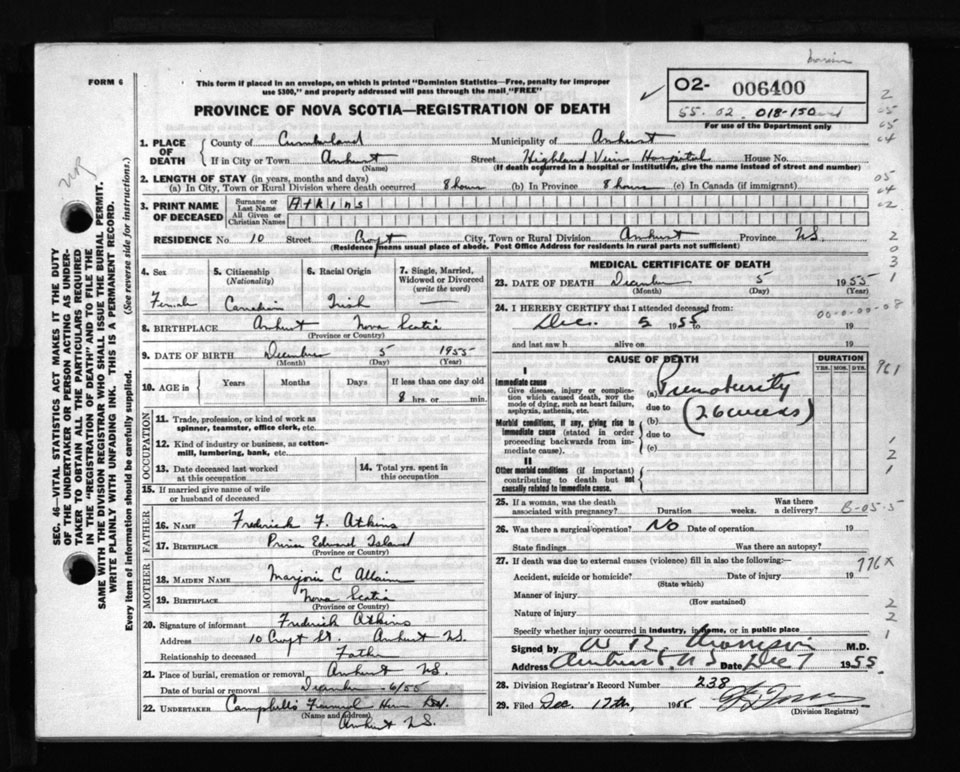 FORM 6
This form if placed in an envelope, on which is printed "Dominion Statistics—Free, penalty for improper
use $300," and properly addressed will pass through the mail "FREE"
PROVINCE OF NOVA SCOTIA—REGISTRATION OF DEATH
O2- 006400
55. 02. 018-150
For use of the Department only
SEC. 46—VITAL STATISTICS ACT MAKES IT THE DUTY
OF THE UNDERTAKER OR PERSON ACTING AS UNDER-
TAKER TO OBTAIN ALL THE PARTICULARS REQUIRED
IN THE "REGISTRATION OF DEATH" AND TO FILE THE
SAME WITH THE DIVISION REGISTRAR WHO SHALL ISSUE THE BURIAL PERMIT.
WRITE PLAINLY WITH UNFADING INK. THIS IS A PERMANENT RECORD.
Every item of information should be carefully supplied. (See reverse side for instructions.)
1. PLACE OF DEATH
County of Cumberland Municipality of Amherst
If in City or Town Amherst Street Highland View Hospital House No.
(Name) (If death occurred in a hospital or institution, give the name instead of street and number)
2. LENGTH OF STAY (in years, months and days)
(a) In City, Town or Rural Division where death occurred 8 hours (b) In Province 8 hours (c) In Canada (if immigrant)
3. PRINT NAME OF DECEASED
Surname or Last Name Atkins
All Given or Christian Names
RESIDENCE No. 10 Street Croft City, Town or Rural Division Amherst Province N.S.
(Residence means usual place of abode. Post Office Address for residents in rural parts not sufficient)
4. Sex Female
5. Citizenship (Nationality) Canadian
6. Racial Origin Irish
7. Single, Married, Widowed or Divorced (write the word)
8. BIRTHPLACE Amherst Nova Scotia
(Province or Country)
9. DATE OF BIRTH December 5 1955
(Month) (Day) (Year)
10. AGE in Years Months Days If less than one day old
8 hrs. or min.
OCCUPATION
11. Trade, profession, or kind of work as
spinner, teamster, office clerk, etc.
12. Kind of industry or business, as cotton-
mill, lumbering, bank, etc.
13. Date deceased last worked
at this occupation
14. Total yrs. spent in
this occupation
15. If married give name of wife
or husband of deceased
FATHER
16. NAME Frederick F. Atkins
17. BIRTHPLACE Prince Edward Island
(Province or Country)
MOTHER
18. MAIDEN NAME Marjorie C Allain
19. BIRTHPLACE Nova Scotia
(Province or Country)
20. Signature of informant Frederick Atkins
Address 10 Croft St. Amherst N.S.
Relationship to deceased Father
21. Place of burial, cremation or removal Amherst N.S.
Date of burial or removal December 6/55
22. UNDERTAKER Campbells Funeral
(Name and Address)
Amherst N.S.
MEDICAL CERTIFICATE OF DEATH
23. DATE OF DEATH December 5 1955
(Month) (Day) (Year)
24. I HEREBY CERTIFY that I attended deceased from:
Dec. 5 1955 to 19
and last saw h alive on 19
CAUSE OF DEATH DURATION
YRS. MOS. DYS.
I
Immediate cause
Give disease, injury or complica-
tion which caused death, NOT the
mode of dying, such as heart failure,
asphyxia, asthenia, etc.
(a) Prematurity
due to
(b) (26 weeks)
due to
(c)
Morbid conditions, if any, giving rise to
immediate cause (stated in order
proceeding backwards from im-
mediate cause).
II
Other morbid conditions (if important)
contributing to death but not
causally related to immediate cause.
25. If a woman, was the death
associated with pregnancy? Duration weeks. Was there
a delivery?
26. Was there a surgical operation? No Date of operation 19
State findings Was there an autopsy?
27. If death was due to external causes (violence) fill in also the following:—
Accident, suicide or homicide? Date of injury 19
(State which)
Manner of injury
(How sustained)
Nature of injury
Specify whether injury occurred in industry, in home, or in public place
Signed by M.D.
Address Amherst N S Date Dec 7 1955
28. Division Registrar's Record Number 238
29. Filed Dec. 17th, 1955
(Division Registrar)
00-0-00-08
961
B-05-5
776X